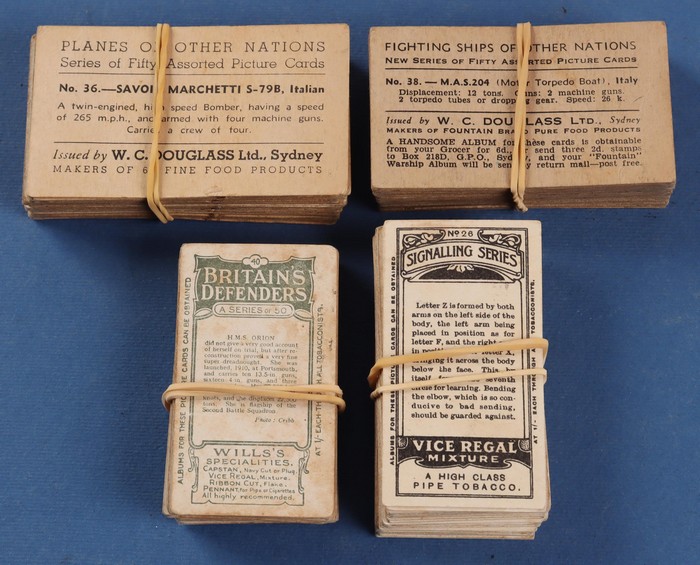 PLANES O OTHER NATIONS
Series of Fifty Assorted Picture Cards
No. 36.—SAVOI MARCHETTI S-79B, Italian
A twin-engined, hi speed Bomber, having a
speed of 265 m.p.h., and armed with four machine guns.
Carrie a crew of four.
Issued by W. C. DOUGLASS Ltd., Sydney
MAKERS OF 6 FINE FOOD PRODUCTS
FIGHTING SHIPS OF OTHER NATIONS
NEW SERIES OF FIFTY ASSORTED PICTURE CARDS
No. 38. — M.A.S.204 (Moto Torpedo Boat), Italy
Displacement: 12 tons. Guns: 2 machine guns.
2 torpedo tubes or dropping gear. Speed: 26 k.
Issued by W. C. DOUGLASS LTD., Sydney
MAKERS OF FOUNTAIN BRAND PURE FOOD PRODUCTS
A HANDSOME ALBUM for these cards is obtainable
from your Grocer for 6d., or send three 2d. stamps
to Box 218D, G.P.O., Sydney, and your "Fountain"
Warship Album will be sent by return mail—post free.
40
BRITAIN'S
DEFENDERS
A SERIES OF 50
H.M.S. ORION
did not give a very good account
of herself on trial, but after re-
construction proved a very fine
super dreadnought. She was
launched, 1910, at Portsmouth,
and carries ten 13.5-in. guns,
sixteen 4-in. guns, and three
knots, and she displaces 22,500
tons. She is flagship of the
Second Battle Squadron
Photo: Cribb
WILLS'S
SPECIALITIES.
CAPSTAN, Navy Cut or Plug.
VICE REGAL, Mixture.
RIBBON CUT, Flake.
PENNANT, for Pipe or Cigarettes
All highly recommended.
ALBUMS FOR THESE PICTURE CARDS CAN BE OBTAINED
AT 1/- EACH THROUGH ALL TOBACCONISTS.
No 26
SIGNALLING SERIES
Letter Z is formed by both
arms on the left side of the
body, the left arm being
placed in position as for
letter F, and the right
in position letter A,
bringing it across the body
below the face. This by
itself seventh
circle for learning. Bending
the elbow, which is so con-
ducive to bad sending,
should be guarded against.
VICE REGAL
MIXTURE
A HIGH CLASS
PIPE TOBACCO.
ALBUMS FOR THESE PICTURE CARDS CAN BE OBTAINED
AT 1/- EACH THROUGH ALL TOBACCONISTS.